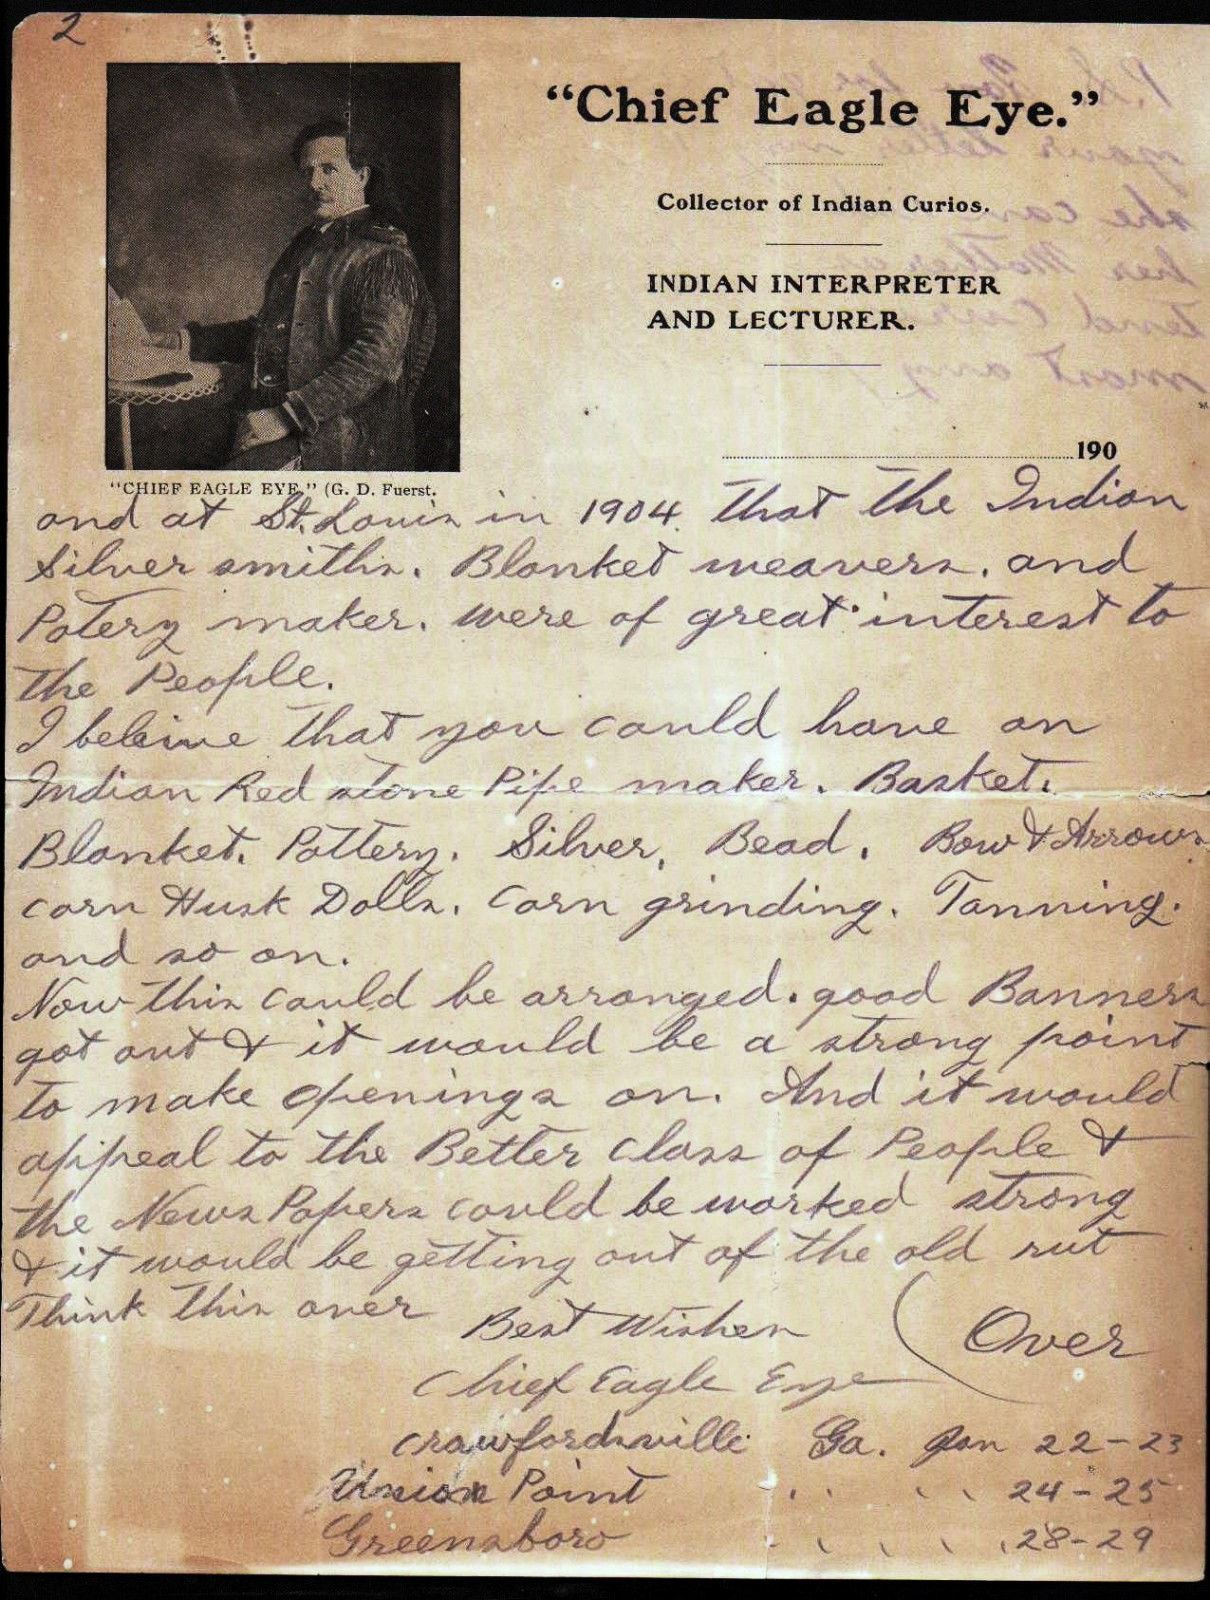 2
"Chief Eagle Eye."
Collector of Indian Curios.
INDIAN INTERPRETER
AND LECTURER.
190
"CHIEF EAGLE EYE." (G. D. Fuerst.
and at St. Louis in 1904 that the Indian
Silver smiths. Blanket weavers. and
Potery maker. were of great interest to
the People.
I beleive that you could have an
Indian Red stone Pipe maker. Basket.
Blanket. Pottery. Silver, Bead. Bow & Arrows
corn Husk Dolls. Corn grinding. Tanning.
and so on.
Now this could be arranged. good Banners
got out & it would be a strong point
to make openings on. And it would
appeal to the Better class of People &
the News Papers could be worked strong
& it would be getting out of the old rut
Think this over
Best Wishes
(Over
Chief Eagle Eye
Crawfordsville Ga. Jan 22-23
Union Point " " 24-25
Greensboro " " 28-29